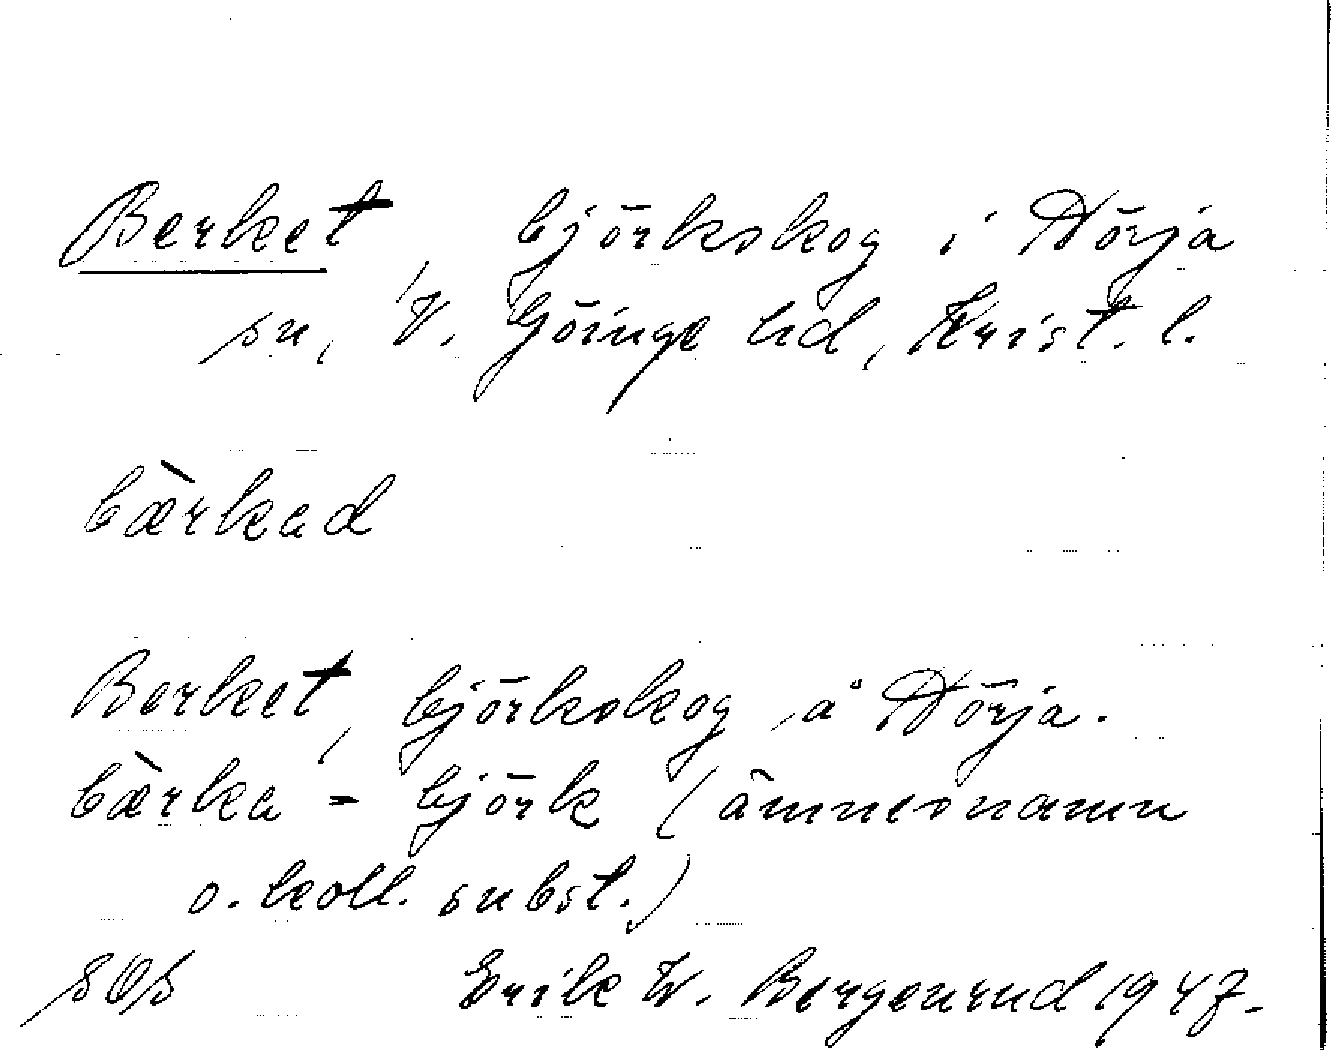 Berket, björkskog i Dörja
sn, V. Göinge hd, Krist. l.
bærkad
Berket, björkskog å Dörja.
bærka = björk (ämnesnamn
o. koll. subst.)
Erik W. Bergenrud 1947.